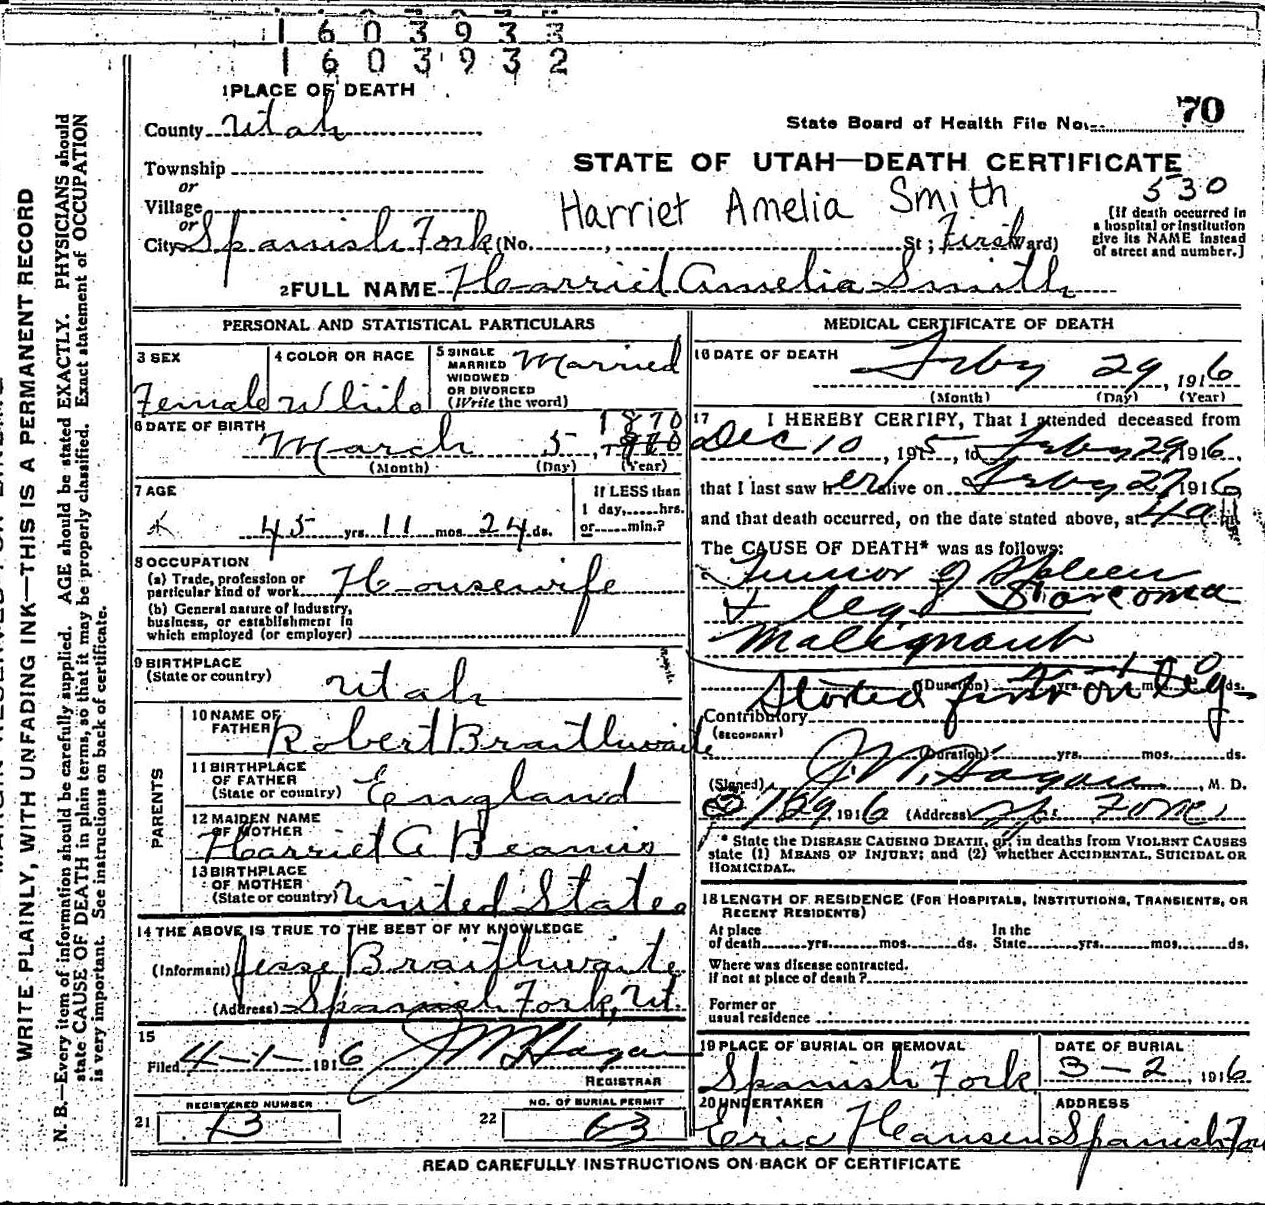 1603933
1603932
1 PLACE OF DEATH
County Utah
State Board of Health File No. 70
Township
or
Village
or
City Spanish Fork (No. , St; First Ward)
STATE OF UTAH—DEATH CERTIFICATE
530
Harriet Amelia Smith
[If death occurred in
a hospital or institution
give its NAME instead
of street and number.]
2 FULL NAME Harriet Amelia Smith
PERSONAL AND STATISTICAL PARTICULARS
3 SEX
Female
4 COLOR OR RACE
White
5 SINGLE
MARRIED
WIDOWED
OR DIVORCED
(Write the word)
Married
6 DATE OF BIRTH
1870
March 5,
(Month) (Day) (Year)
7 AGE
45 yrs. 11 mos. 24 ds.
If LESS than
1 day, hrs.
or min.?
8 OCCUPATION
(a) Trade, profession or
particular kind of work Housewife
(b) General nature of industry,
business, or establishment in
which employed (or employer)
9 BIRTHPLACE
(State or country) Utah
PARENTS
10 NAME OF
FATHER Robert Braithwaite
11 BIRTHPLACE
OF FATHER
(State or country) England
12 MAIDEN NAME
OF MOTHER
Harriet A
13 BIRTHPLACE
OF MOTHER
(State or country) United States
14 THE ABOVE IS TRUE TO THE BEST OF MY KNOWLEDGE
(Informant) Jesse Braithwaite
(Address) Spanish Fork, Ut.
15
Filed 4-1- 1916 J W Hagan
REGISTRAR
REGISTERED NUMBER
21 13
NO. OF BURIAL PERMIT
22 63
MEDICAL CERTIFICATE OF DEATH
16 DATE OF DEATH
Feby 29, 1916
(Month) (Day) (Year)
17 I HEREBY CERTIFY, That I attended deceased from
Dec 10, 1915, to Feby 29 1916,
that I last saw her alive on Feby 27 1916
and that death occurred, on the date stated above, at 4a m.
The CAUSE OF DEATH* was as follows:
Tumor of Spleen
& leg Sarcoma
Malignant
(Duration) yrs. mos. ds.
Started first on leg
Contributory
(SECONDARY)
(Duration) yrs. mos. ds.
(Signed) J.W. Hagan, M. D.
2/29, 1916 (Address) Sp. Fork
* State the DISEASE CAUSING DEATH, or, in deaths from VIOLENT CAUSES
state (1) MEANS OF INJURY; and (2) whether ACCIDENTAL, SUICIDAL OR
HOMICIDAL.
18 LENGTH OF RESIDENCE (FOR HOSPITALS, INSTITUTIONS, TRANSIENTS, OR
RECENT RESIDENTS)
At place
of death yrs. mos. ds.
In the
State yrs. mos. ds.
Where was disease contracted.
If not at place of death?
Former or
usual residence
19 PLACE OF BURIAL OR REMOVAL
Spanish Fork
DATE OF BURIAL
3-2, 1916
20 UNDERTAKER
Eric Hansen
ADDRESS
Spanish
READ CAREFULLY INSTRUCTIONS ON BACK OF CERTIFICATE
WRITE PLAINLY, WITH UNFADING INK—THIS IS A PERMANENT RECORD
N. B.—Every item of information should be carefully supplied. AGE should be stated EXACTLY. PHYSICIANS should
state CAUSE OF DEATH in plain terms, so that it may be properly classified. Exact statement of OCCUPATION
is very important. See instructions on back of certificate.